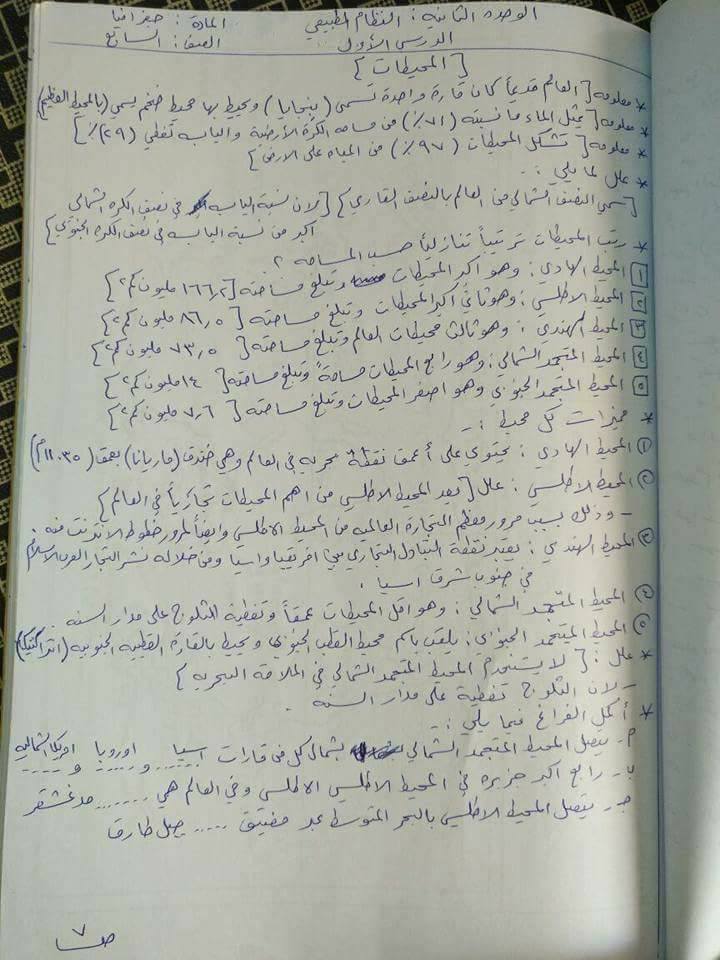 الوحدة الثانية: النظام الطبيعي المادة: جغرافيا
الدرس الأول الصف: السابع
[المحيطات]
* معلومة [العالم قديماً كان قارة واحدة تسمى (بنجايا) ويحيط بها محيط ضخم يسمى (بالمحيط العظيم)
* معلومة [يمثل الماء ما نسبته (٧١٪) من مساحة الكرة الأرضية واليابسة تغطي (٢٩٪)]
* معلومة [تشكل المحيطات (٩٧٪) من المياه على الأرض]
* علل لما يلي :-
[سمي النصف الشمالي من العالم بالنصف القاري] [لان نسبة اليابسه في نصف الكره الشمالي
اكبر من نسبة اليابسه في نصف الكره الجنوبي]
* رتب المحيطات ترتيباً تنازلياً حسب المساحه ؟
١ المحيط الهادي : وهو اكبر المحيطات وتبلغ مساحته [١٦٦,٢ مليون كم٢]
٢ المحيط الاطلسي : وهو ثاني اكبر المحيطات وتبلغ مساحته [٨٦,٥ مليون كم٢]
٣ المحيط الهندي : وهو ثالث محيطات العالم وتبلغ مساحته [٧٣,٥ مليون كم٢]
٤ المحيط المتجمد الشمالي : وهو رابع المحيطات مساحةً وتبلغ مساحته [١٤ مليون كم٢]
٥ المحيط المتجمد الجنوبي وهو اصغر المحيطات وتبلغ مساحته [٧,٦ مليون كم٢]
* مميزات كل محيط :-
١ المحيط الهادي : يحتوي على أعمق نقطة بحريه في العالم وهي خندق (ماريانا) بعمق (١١٠٣٥م)
٢ المحيط الاطلسي : علل [يعد المحيط الاطلسي من اهم المحيطات تجارياً في العالم]
- وذلك بسبب مرور معظم التجارة العالميه من المحيط الاطلسي وايضاً لمرور خطوط الانترنت منه .
٣ المحيط الهندي : يعتبر نقطة التبادل التجاري بين افريقيا واسيا ومن خلاله نشر التجار العرب الاسلام
في جنوب شرق اسيا .
٤ المحيط المتجمد الشمالي : وهو اقل المحيطات عمقاً وتغطية الثلوج على مدار السنه .
٥ المحيط المتجمد الجنوبي : يلقب باسم محيط القطب الجنوبي ويحيط بالقارة القطبيه الجنوبيه (انتراكتيكا)
* علل : [لا يستخدم المحيط المتجمد الشمالي في الملاحة البحريه]
- لان الثلوج تغطية على مدار السنه .
* أكمل الفراغ فيما يلي :-
أ- يتصل المحيط المتجمد الشمالي بشمال كل من قارات اسيا و اوروبا و امريكا الشماليه
ب- رابع اكبر جزيره في المحيط الاطلسي الاطلسي وفي العالم هي ....... مدغشقر
جـ- يتصل المحيط الاطلسي بالبحر المتوسط عبر مضيق ..... جبل طارق
٧